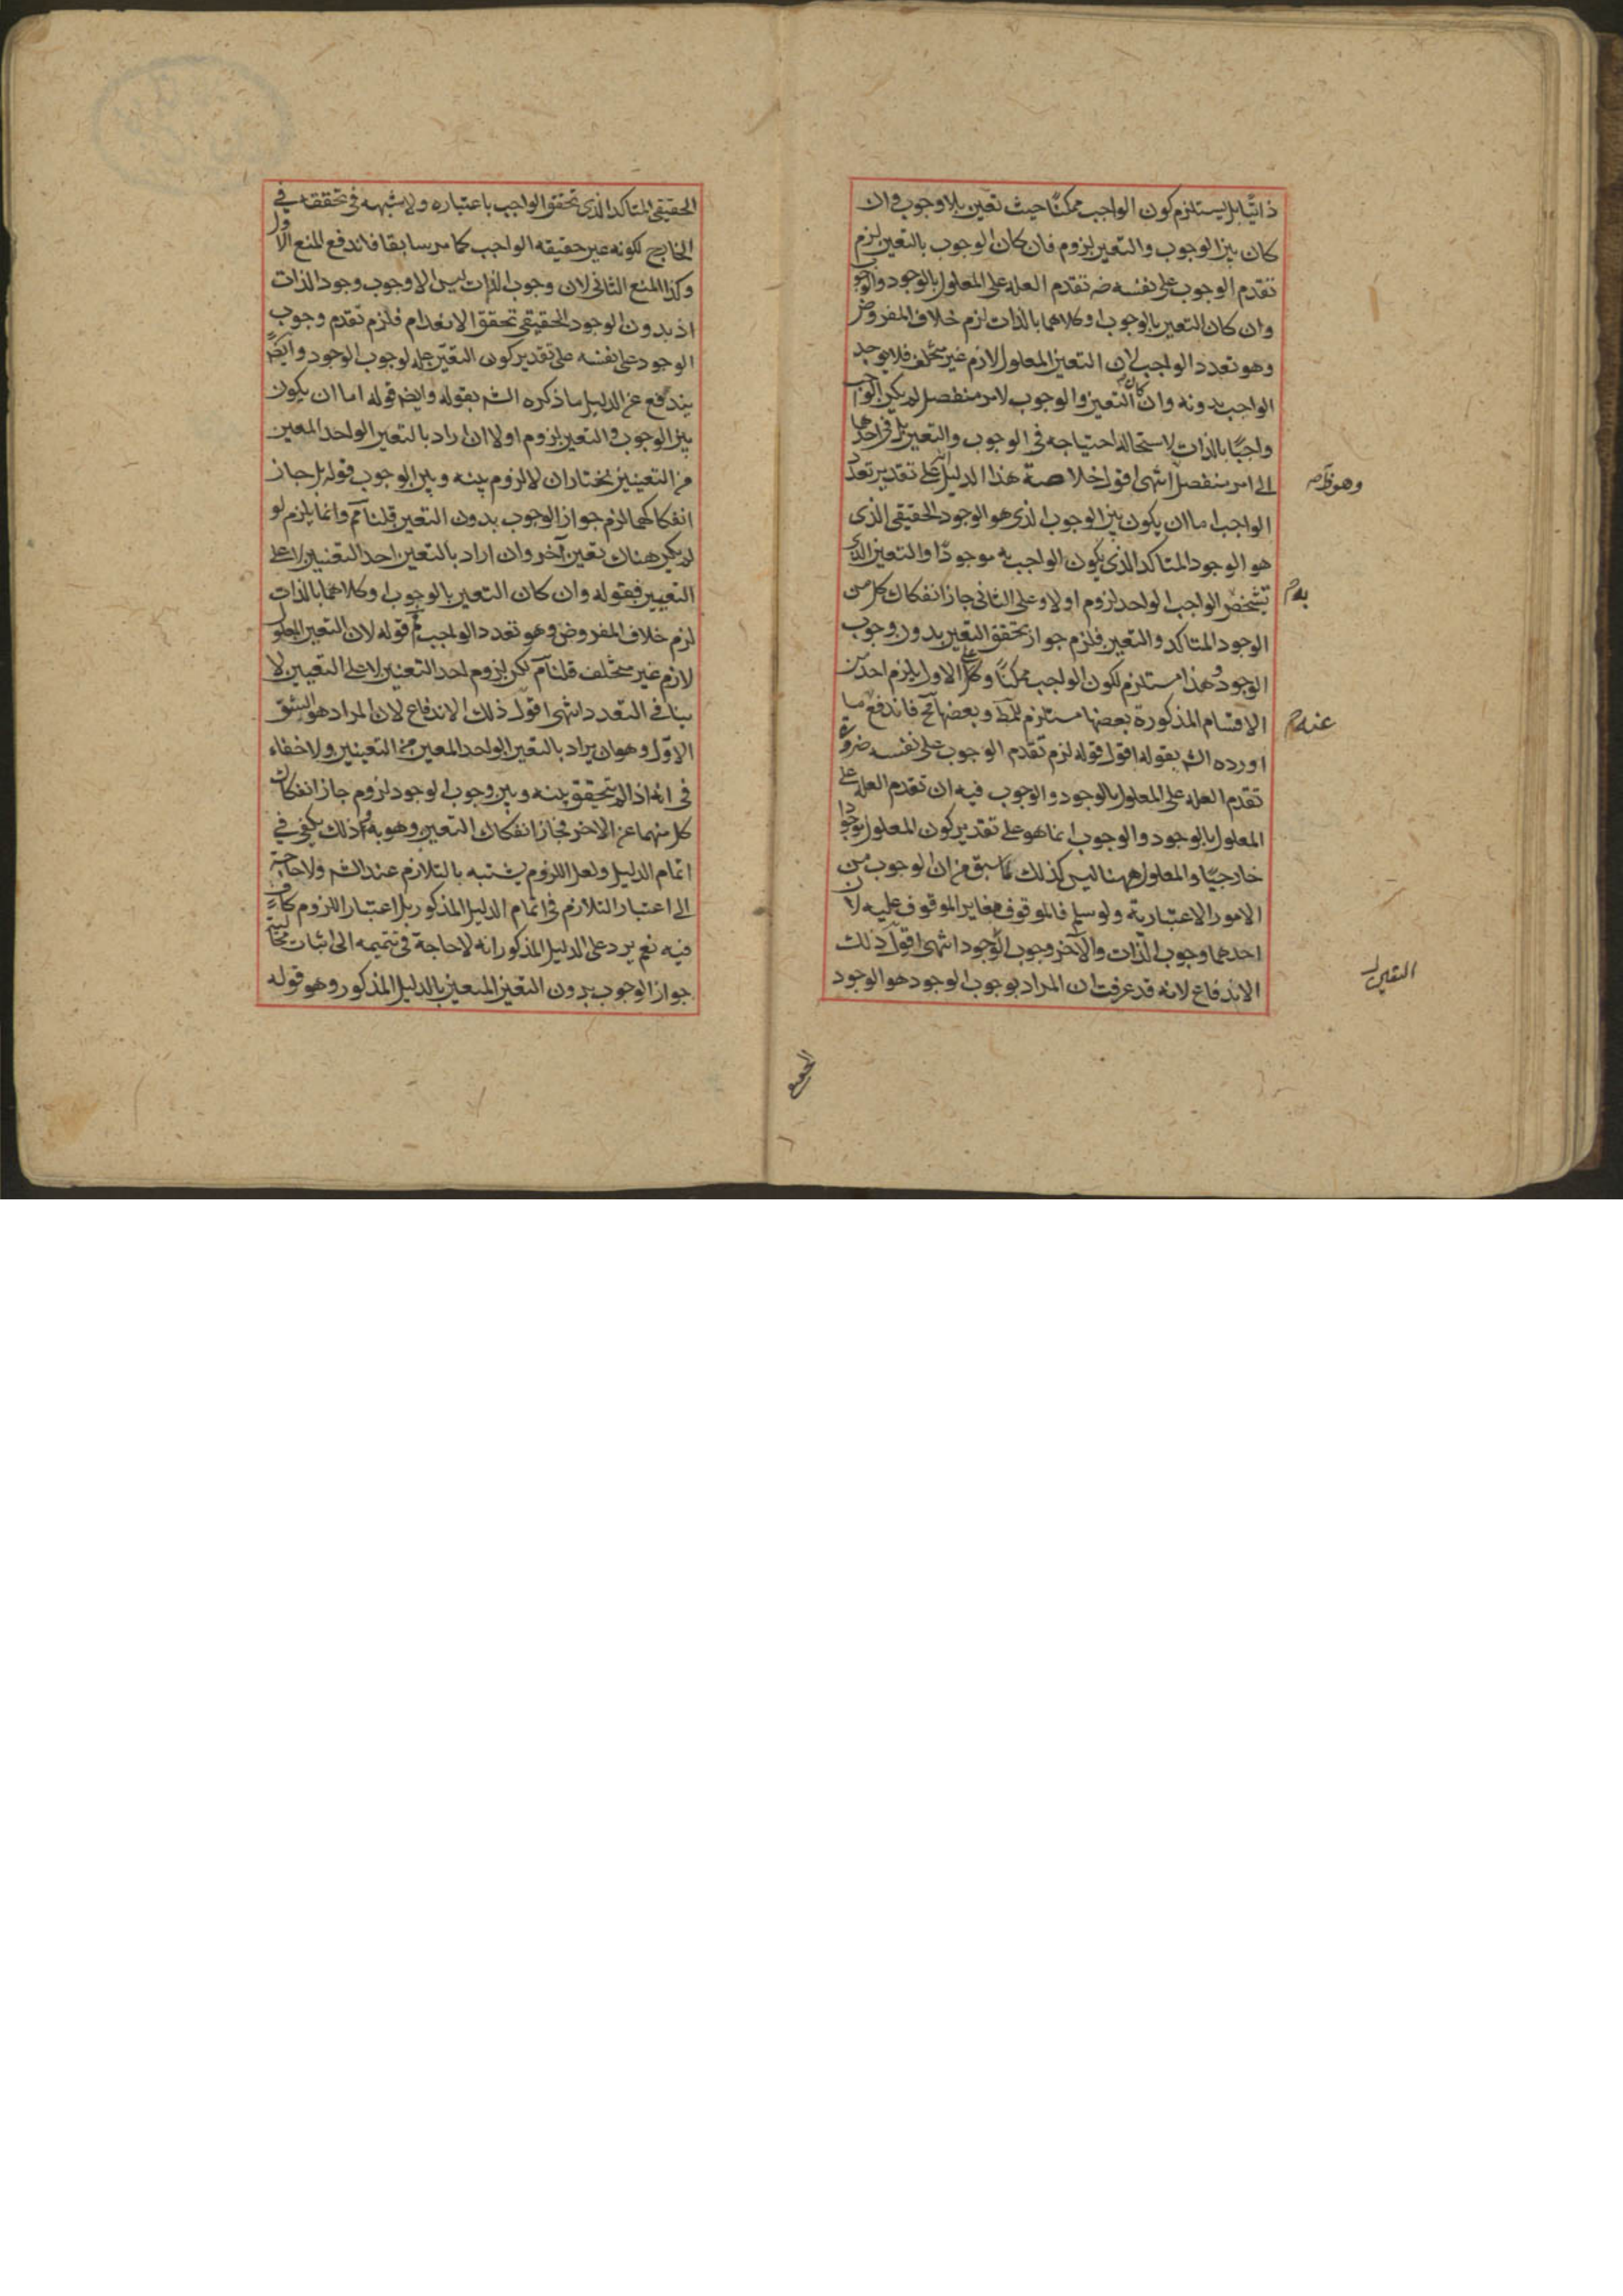 ذاتيا بل يستلزم كون الواجب ممكنا حيث تعين بلا وجوب وان
كان بين الوجوب والتعين لزوم فان كان الوجوب بالتعين لزم
تقدم الوجوب على نفسه ضه تقدم العله على المعلول بالوجود والوجوب
وان كان التعين بالوجوب او كلاهما بالذات لزم خلاف المفروض
وهو تعدد الواجب لان التعين المعلول لازم غير متخلف فلا يوجد
الواجب بدونه وان كان التعين والوجوب لامر منفصل لم يكن الواجب
واجبا بالذات لاستحاله احتياجه فى الوجوب والتعين بل فى احدهما
الى امر منفصل انتهى اقول خلاصة هذا الدليل انه على تقدير تعدد
الواجب اما ان يكون بين الوجوب الذى هو الوجود الحقيقى الذى
هو الوجود المتاكد الذى يكون الواجب به موجودا والتعين الذى
تشخص الواجب الواحد لزوم او لا وعلى الثانى جاز انفكاك كل من
الوجود المتاكد والتعين فلزم جواز تحقق التعين بدون وجوب
الوجود وهذا مستلزم لكون الواجب ممكنا وعلى الاول يلزم احد من
الاقسام المذكورة بعضها مستلزم للمط وبعضها مح فاندفع ما
اورده الش بقوله اقول قوله لزم تقدم الوجوب على نفسه ضرورة
تقدم العله على المعلول بالوجود والوجوب فيه ان تقدم العله على
المعلول بالوجود والوجوب انما هو على تقدير كون المعلول موجودا
خارجيا والمعلول ههنا ليس كذلك لما سبق من ان الوجوب من
الامور الاعتبارية ولو سلم فالموقوف مغاير الموقوف عليه لان
احدهما وجوب الذات والآخر وجوب الوجود انتهى اقول ذلك
الاندفاع لانه قد عرفت ان المراد بوجوب الوجود هو الوجود
به
عنه
الحقيقى المتاكد الذى تحقق الواجب باعتباره ولا شبهه فى تحققه فى
الخارج لكونه عين حقيقه الواجب كما مر سابقا فاندفع المنع الاول
وكذا المنع الثانى لان وجوب الذات ليس الا وجوب وجود الذات
اذ بدون الوجود الحقيقى تحقق الانعدام فلزم تقدم وجوب
الوجود على نفسه على تقدير كون التعين عله لوجوب الوجود وايضا
يندفع عن الدليل ما ذكره الش بقوله وايضا قوله اما ان يكون
بين الوجوب والتعين لزوم او لا ان اراد بالتعين الواحد المعين
من التعينين نختار ان لا لزوم بينه وبين الوجوب قوله بل جاز
انفكاكهما لزم جواز الوجوب بدون التعين قلنا مم وانما يلزم لو
لم يكن هناك تعين آخر وان اراد بالتعين احد التعينين لا على
التعيين فقوله وان كان التعين بالوجوب او كلاهما بالذات
لزم خلاف المفروض وهو تعدد الواجب مم قوله لان التعين المعلول
لازم غير متخلف قلنا مم لكن لزوم احد التعينين لا على التعيين لا
ينافى التعدد انتهى اقول ذلك الاندفاع لان المراد هو الشق
الاول وهو ان يراد بالتعين الواحد المعين من التعينين ولا خفاء
فى انه اذا لم يتحقق بينه وبين وجوب الوجود لزوم جاز انفكاك
كل منهما عن الاخر فجاز انفكاك التعين وهو به وذلك يكفى فى
اتمام الدليل ولعل اللزوم يشتبه بالتلازم عند الش ولا حاجة
الى اعتبار التلازم فى اتمام الدليل المذكور بل اعتبار اللزوم كاف
فيه نعم يرد على الدليل المذكور انه لا حاجة فى تتميمه الى اثبات
جواز الوجوب بدون التعين المتعين بالدليل المذكور وهو قوله